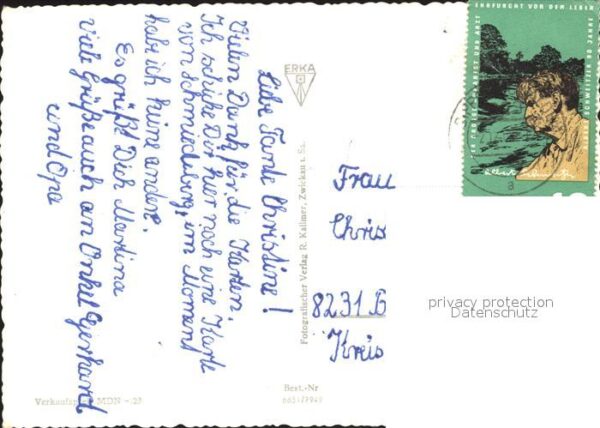 Liebe Tante Christine!
Vielen Dank für die Karten.
Ich schicke Dir hier noch eine Karte
von Schmiedeberg, im Moment
habe ich keine andere.
Es grüßt Dich Martina
Viele Grüße auch an Onkel Gerhard
und Opa
ERKA
Fotografischer Verlag R. Kallmer, Zwickau i. Sa.
Best.-Nr
MDN -.23
Frau
Chris
8231 B
Kreis
privacy protection
Datenschutz
EHRFURCHT VOR DEM LEBEN
SCHWEITZER 90 JAHRE